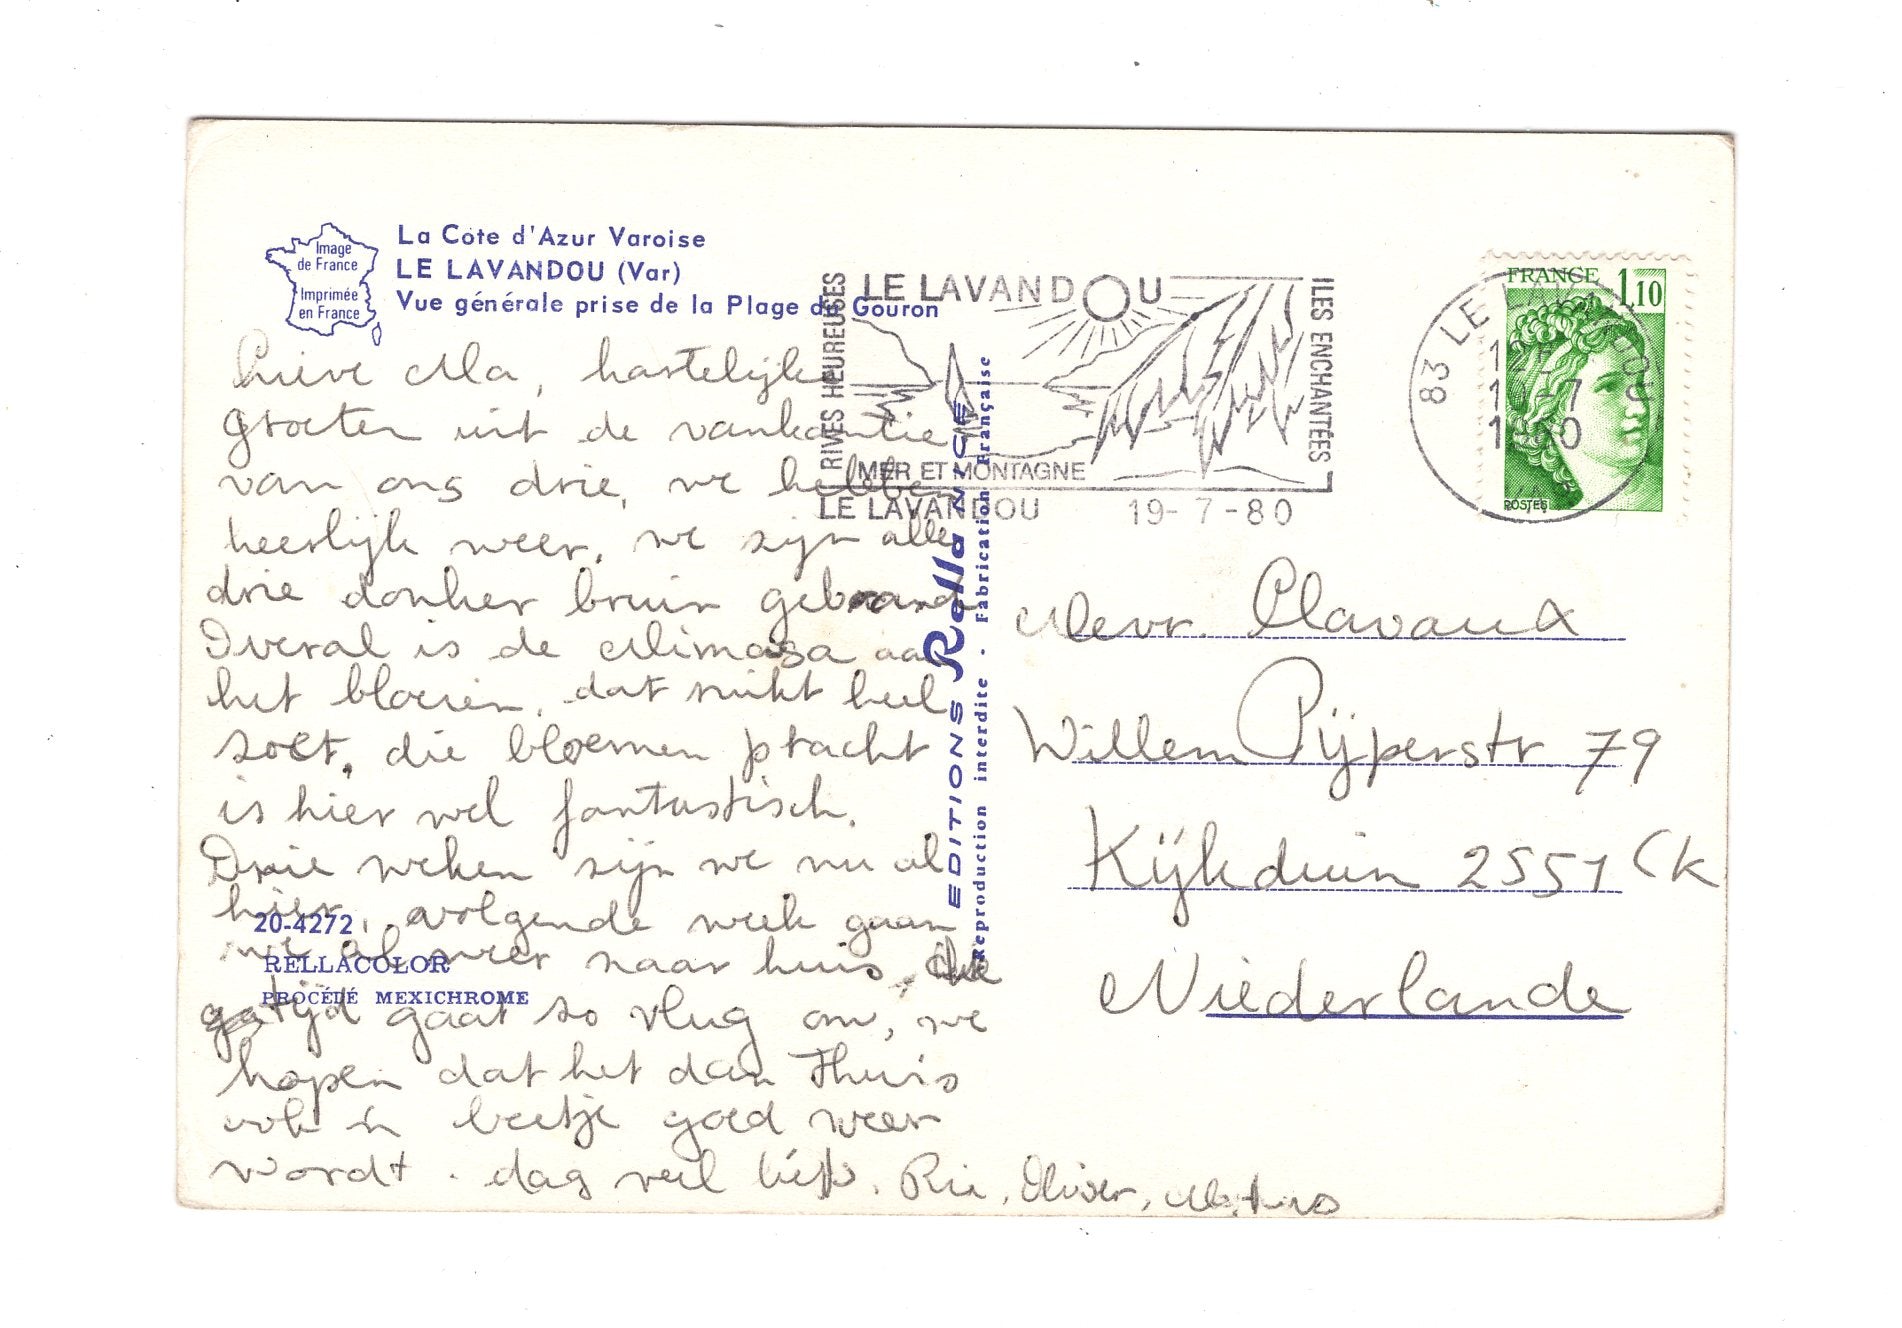 Image
de France
Imprimée
en France
La Côte d'Azur Varoise
LE LAVANDOU (Var)
Vue générale prise de la Plage du Gouron
Lieve Ma, hartelijke
groeten uit de vankantie
van ons drie, we hebben
heerlijk weer, we zijn alle
drie donker bruin gebrand
Overal is de Mimosa aan
het bloeien, dat ruikt heel
zoet, die bloemen pracht
is hier wel fantastisch.
Drie weken zijn we nu al
hier, volgende week gaan
we al weer naar huis, de
tijd gaat zo vlug om, we
hopen dat het dan Thuis
ook 'n beetje goed weer
wordt. dag veel liefs, Ria, Olivier,
20-4272
RELLACOLOR
PROCÉDÉ MEXICHROME
EDITIONS Rella NICE
Reproduction interdite - Fabrication Française
RIVES HEUREUSES
LE LAVANDOU
ILES ENCHANTÉES
MER ET MONTAGNE
LE LAVANDOU 19-7-80
83 LE LAVANDOU
FRANCE 1,10
POSTES
Mevr. Clavaux
Willem Pijperstr 79
Kijkduin 2551 CK
Niederlande